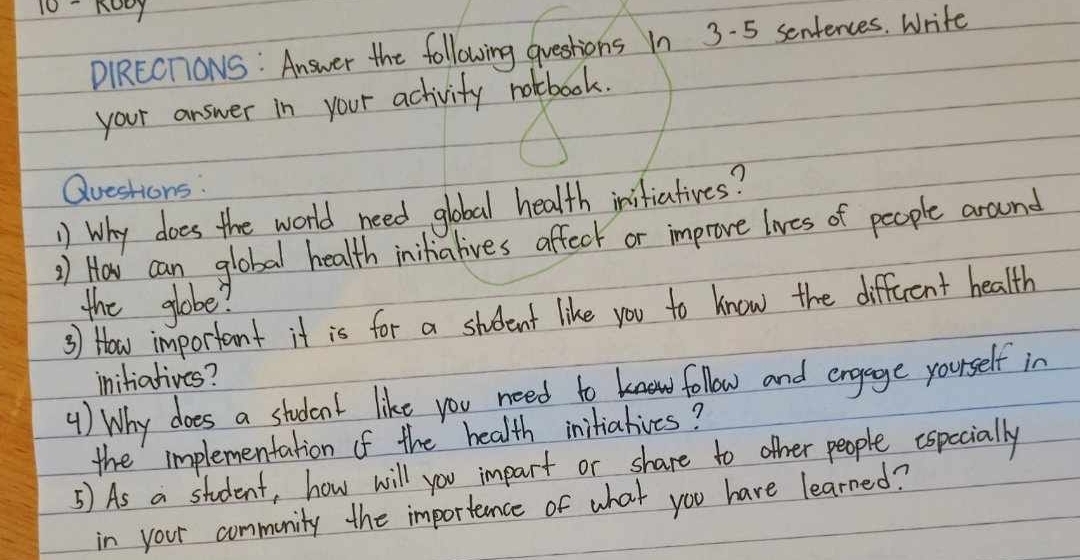 10 - Ruby
DIRECTIONS : Answer the following questions in 3-5 sentences. Write
your answer in your activity notebook.
Questions :
1) Why does the world need global health initiatives?
2) How can global health initiatives affect or improve lives of people around
the globe?
3) How important it is for a student like you to know the different health
initiatives?
4) Why does a student like you need to know follow and engage yourself in
the implementation of the health initiatives?
5) As a student, how will you impart or share to other people especially
in your community the importance of what you have learned?